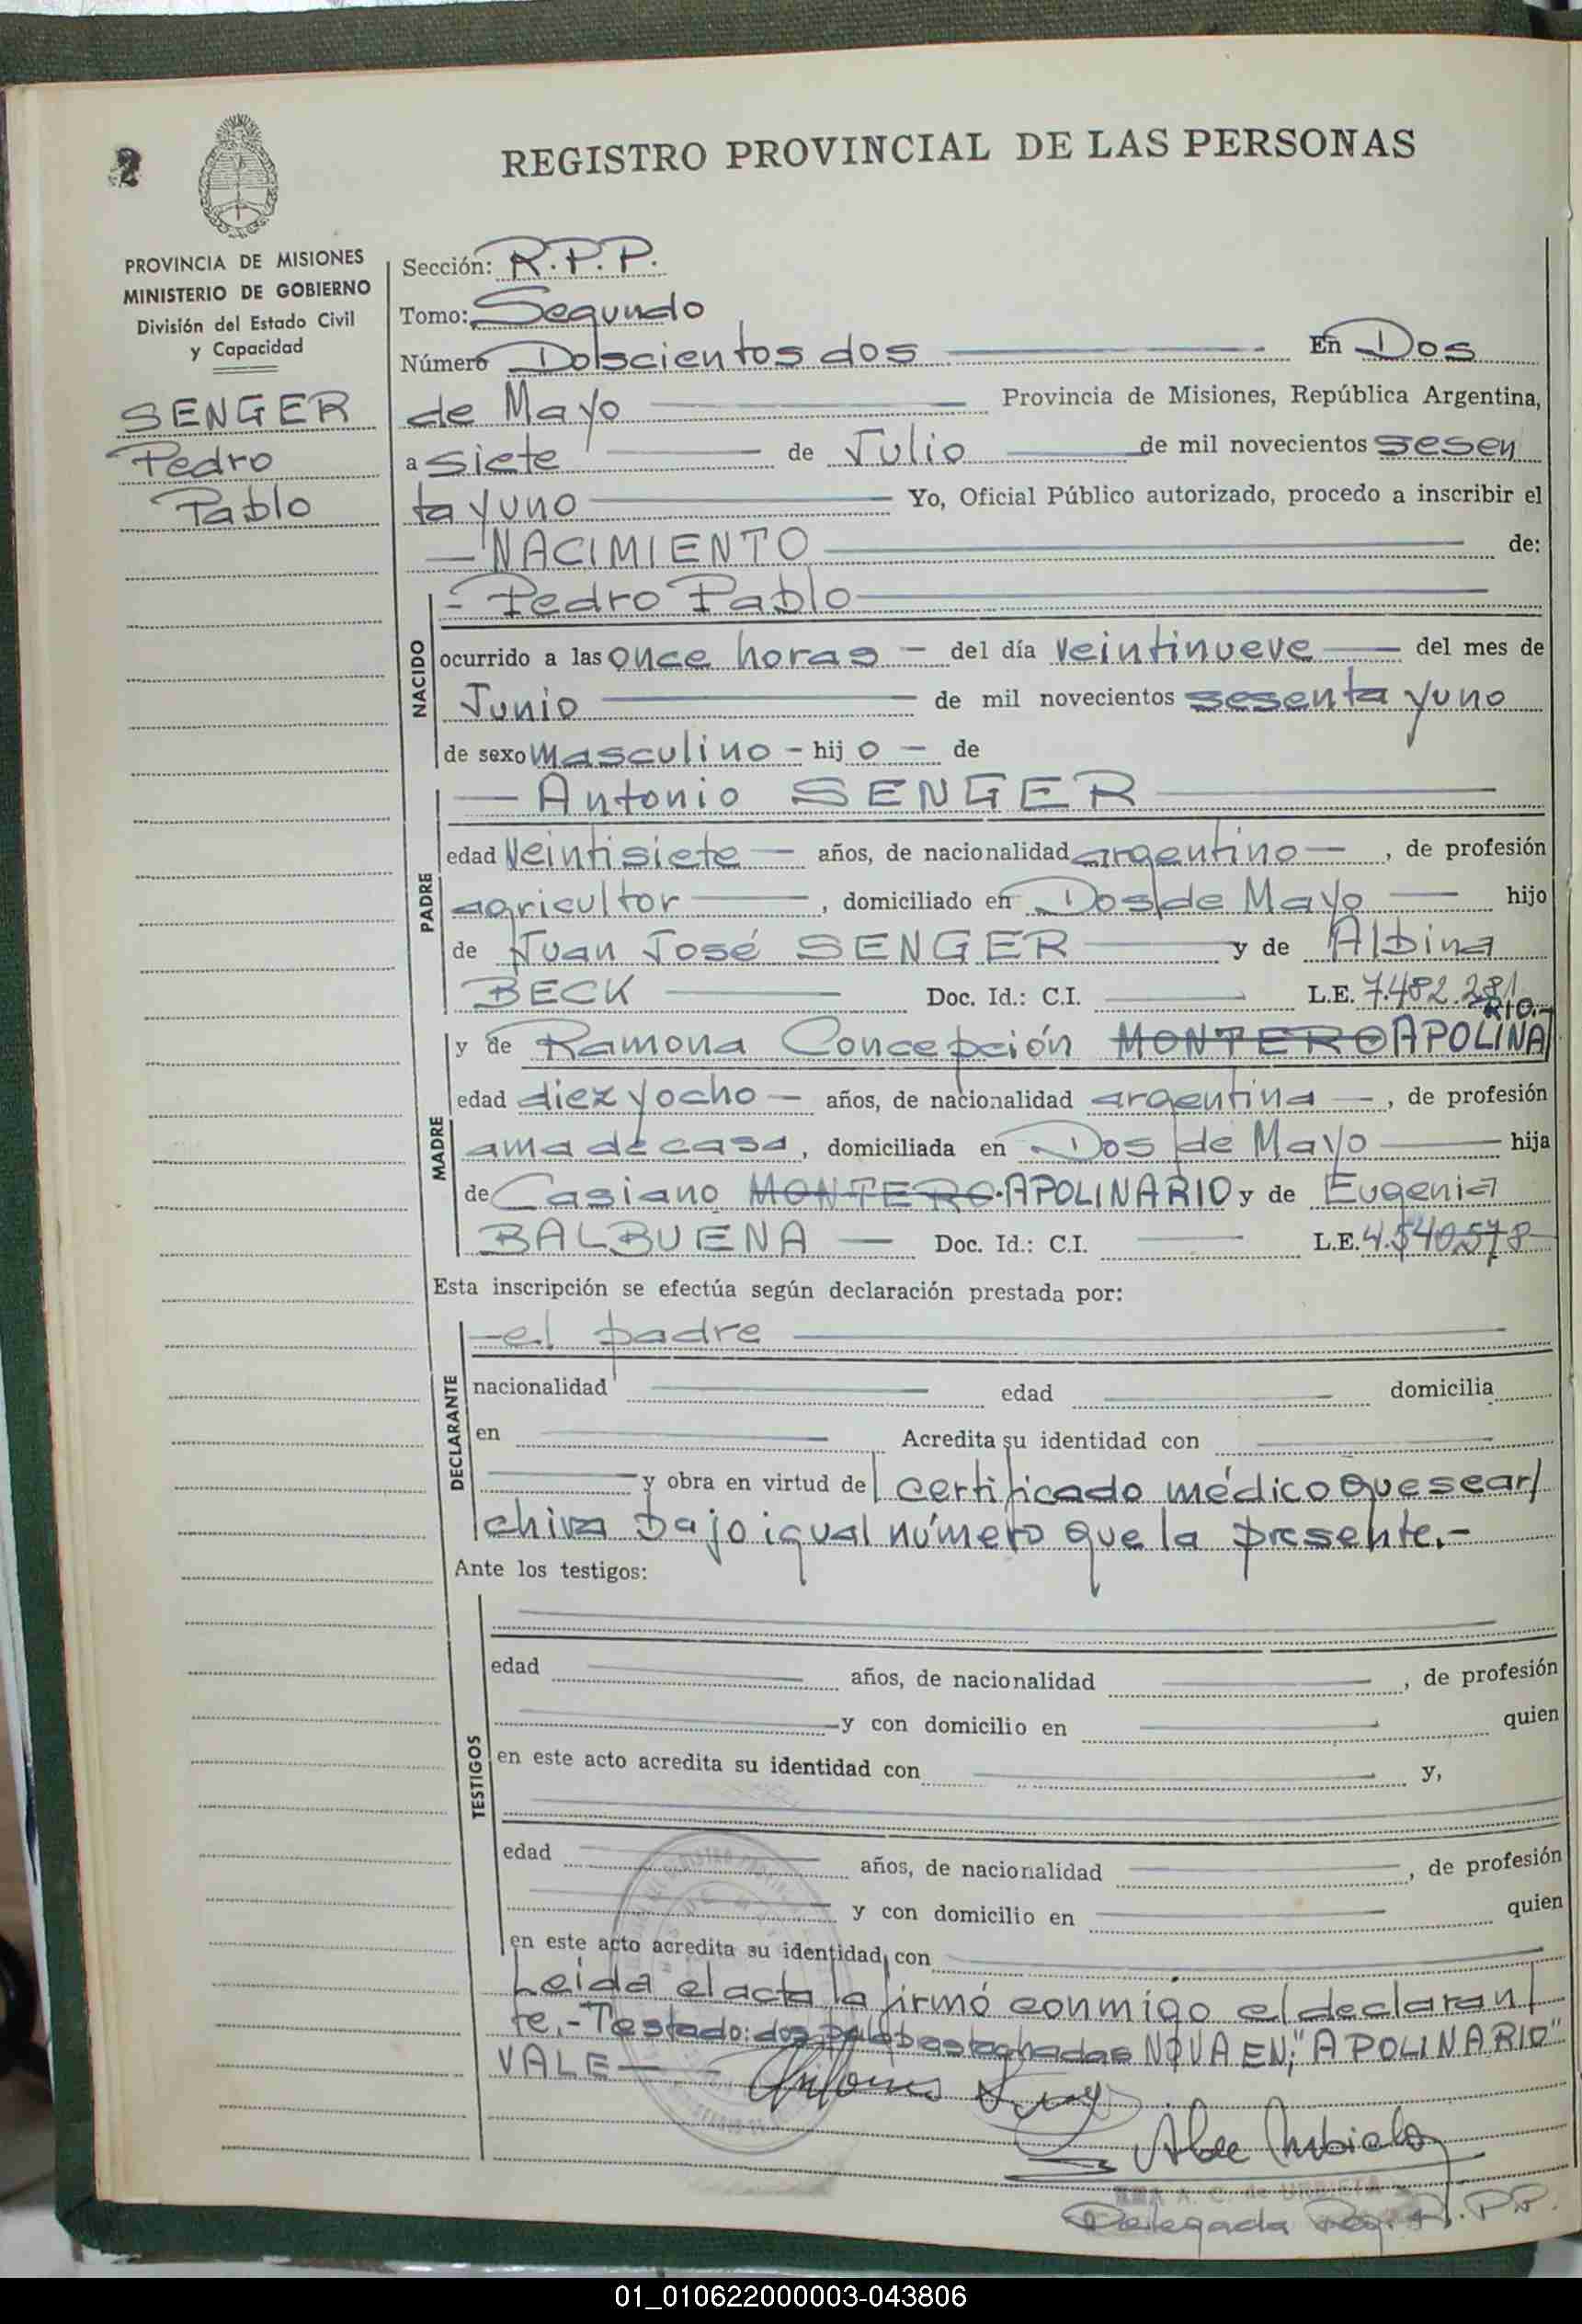 2
REGISTRO PROVINCIAL DE LAS PERSONAS
PROVINCIA DE MISIONES
MINISTERIO DE GOBIERNO
División del Estado Civil
y Capacidad
SENGER
Pedro
Pablo
Sección: R.P.P.
Tomo: Segundo
Número Doscientos dos En Dos
de Mayo Provincia de Misiones, República Argentina,
a siete de Julio de mil novecientos sesen
ta y uno Yo, Oficial Público autorizado, procedo a inscribir el
NACIMIENTO de:
NACIDO
Pedro Pablo
ocurrido a las once horas del día veintinueve del mes de
Junio de mil novecientos sesenta y uno
de sexo masculino - hijo - de
PADRE
Antonio SENGER
edad veintisiete años, de nacionalidad argentino, de profesión
agricultor, domiciliado en Dos de Mayo hijo
de Juan José SENGER y de Albina
BECK Doc. Id.: C.I. L.E. 7.482.281
MADRE
y de Ramona Concepción MONTERO APOLINARIO.-
edad diez y ocho años, de nacionalidad argentina, de profesión
ama de casa, domiciliada en Dos de Mayo hija
de Casiano MONTERO APOLINARIO y de Eugenia
BALBUENA Doc. Id.: C.I. L.E. 4.540.578
Esta inscripción se efectúa según declaración prestada por:
DECLARANTE
el padre
nacionalidad edad domicilia
en Acredita su identidad con
y obra en virtud de certificado médico que se ar/
chiva bajo igual número que la presente.-
Ante los testigos:
TESTIGOS
edad años, de nacionalidad , de profesión
y con domicilio en quien
en este acto acredita su identidad con y,
edad años, de nacionalidad , de profesión
y con domicilio en quien
en este acto acredita su identidad con
Leída el acta la firmó conmigo el declaran/
te.- Testado: dos palabras tachadas NO VA EN; "APOLINARIO"
VALE
A. C. de URBIETA
Delegada Reg. R.P.P.
01_010622000003-043806